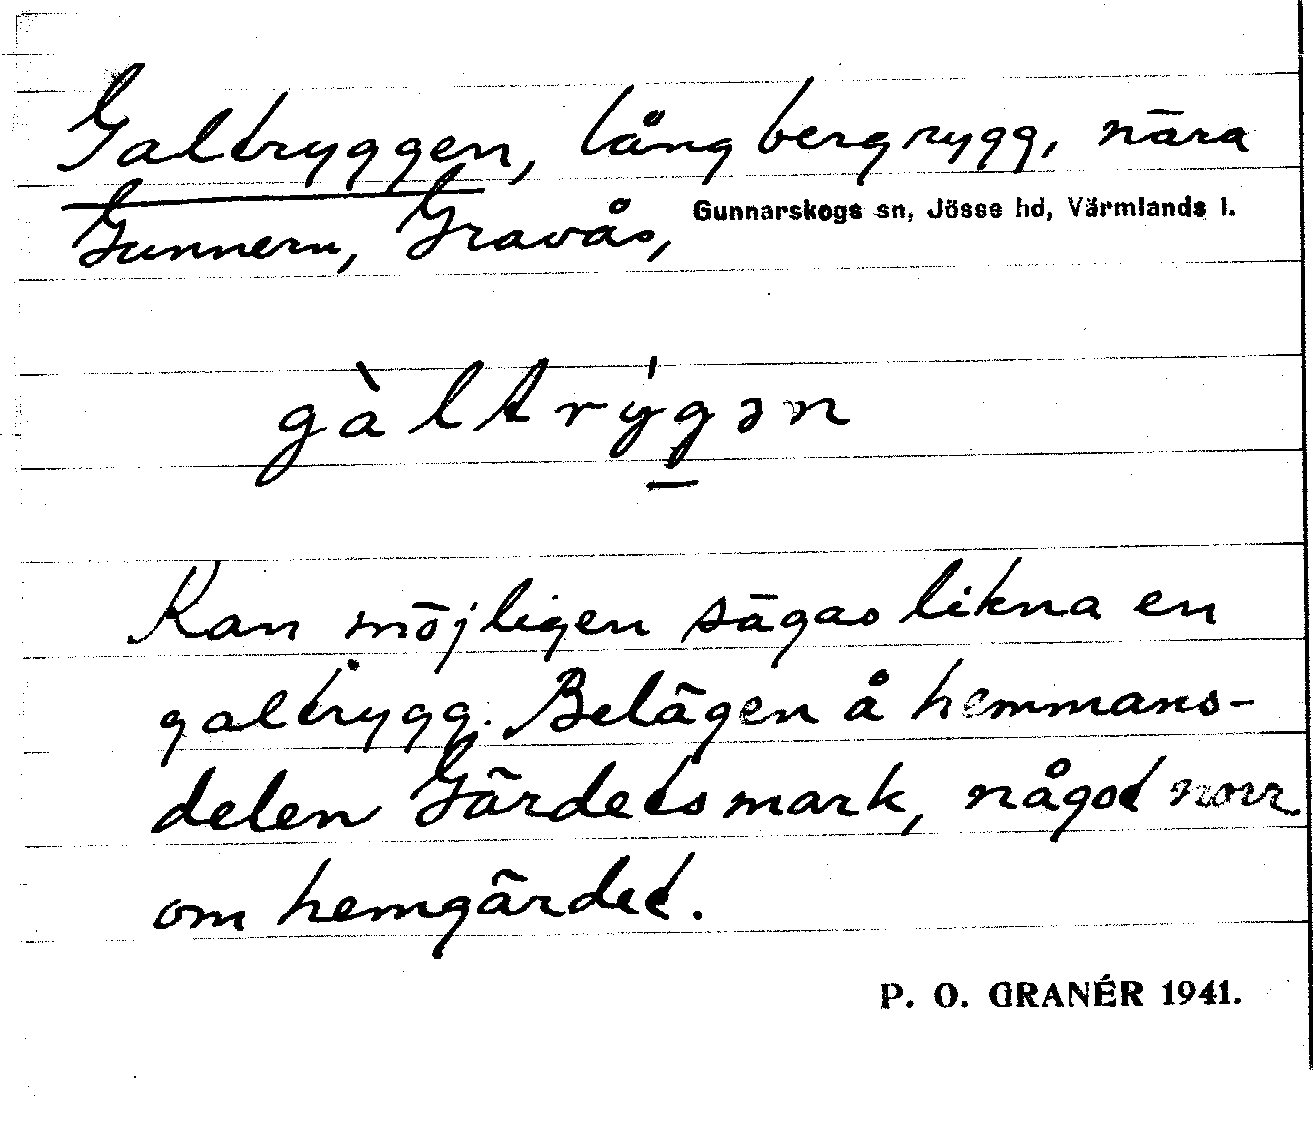 Galtryggen, lång bergrygg, nära
Gunnarskogs sn, Jösse hd, Värmlands l.
Gunnern, Gravås,
gàltrýgən
Kan möjligen sägas likna en
galtrygg. Belägen å hemmans-
delen Gärdetsmark, något norr
om hemgärdet.
P. O. GRANÉR 1941.